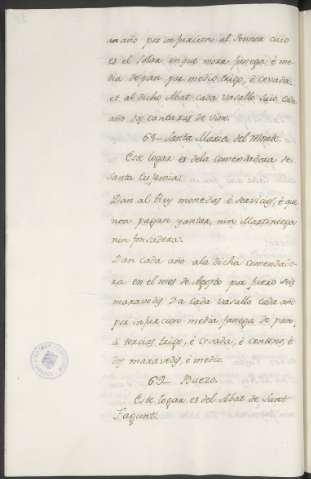 un año por infurcion al Sennor cuio
es el Solar en que mora fanega è me
dia de pan por medio trigo, è cevada.
et al dicho Abat cada vasallo suio cada
año dos cantaras de vino.
68- Santa Maria del Monte.
Este logar es dela comendadora de
Santa
Dan al Rey monedas è servicios, è que
non pagan yantar, nin Martiniega
nin fonsadera.
Dan cada año ala dicha comendado
ra en el mes de Agosto por fuero seis
maravedis. Da Cada vasallo cada año
por infurcion media fanega de pan,
à tercios, trigo, è Cevada, è centeno, è
dos maravedis, è medio.
69- Buezo.
Este logar es del Abat de Sant
Fagunt.